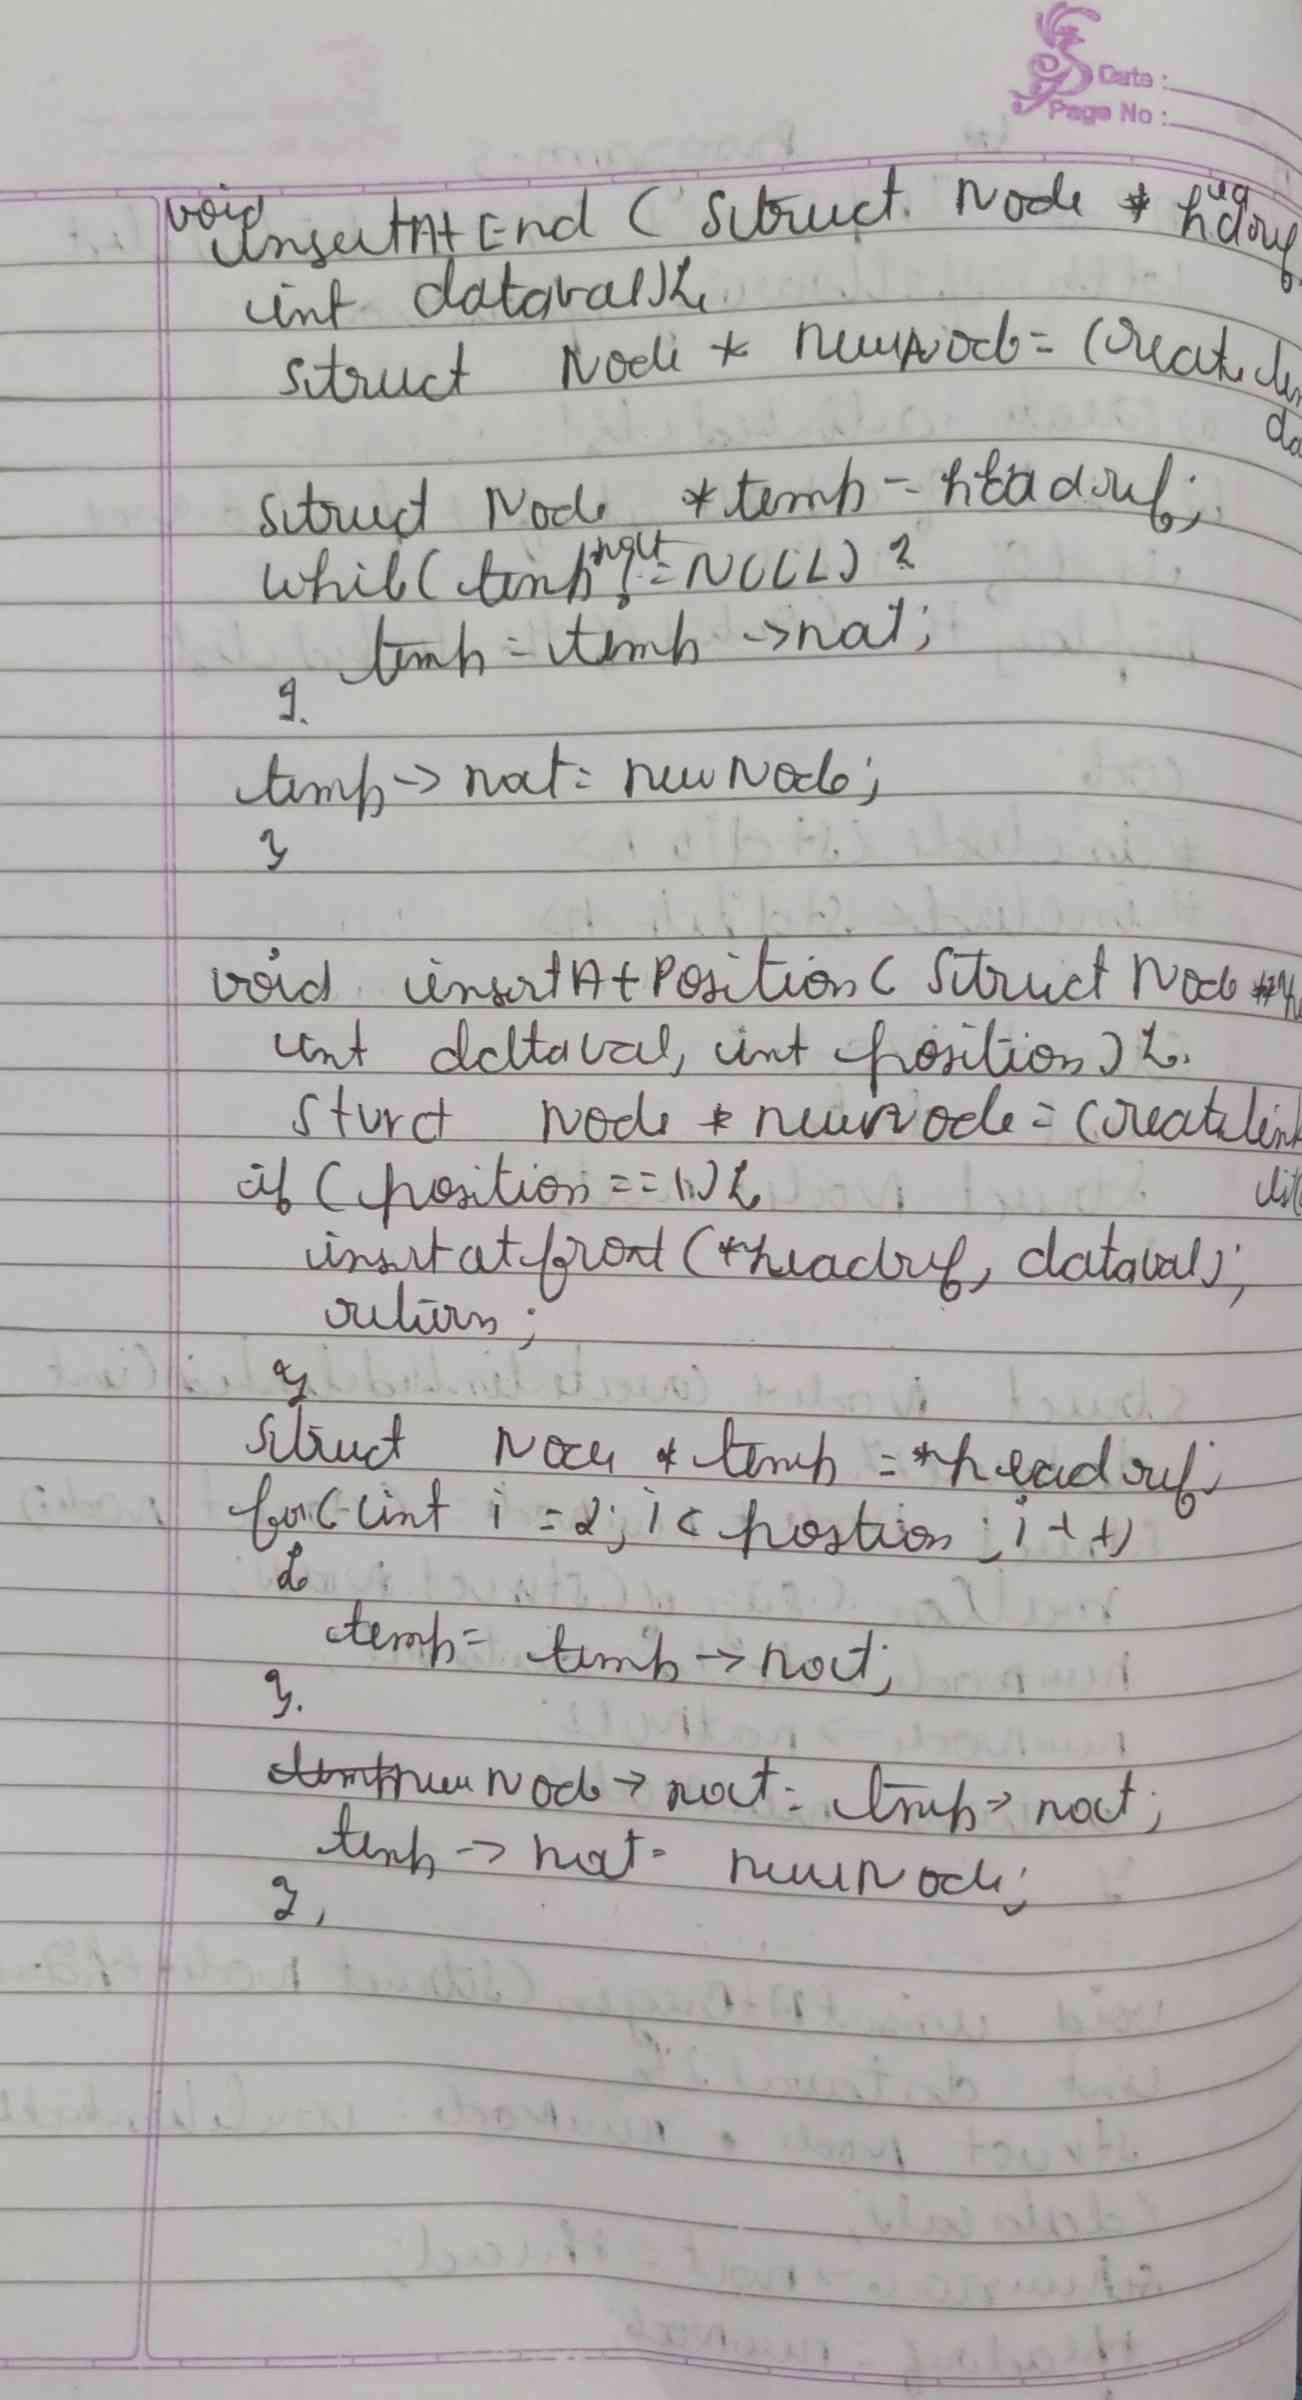 Date :
Page No :
void
insertAtEnd ( Struct Node *
int dataval){
struct Node * newNode = (create
struct Node *temp = headref;
while( temp next != NULL) {
temp = temp -> next;
}.
temp -> next = newNode;
}
void insertAtPosition ( Struct Node **
int dataval, int position ) {.
Sturct Node * newNode = (createlink
if ( position == 1) {
insertatfront (*headref, dataval);
return;
}
struct Node * temp = *headref;
for( int i = 2; i < postion ; i++)
{
temp = temp -> next;
}.
newNode -> next = temp -> next;
temp -> next = newNode;
},